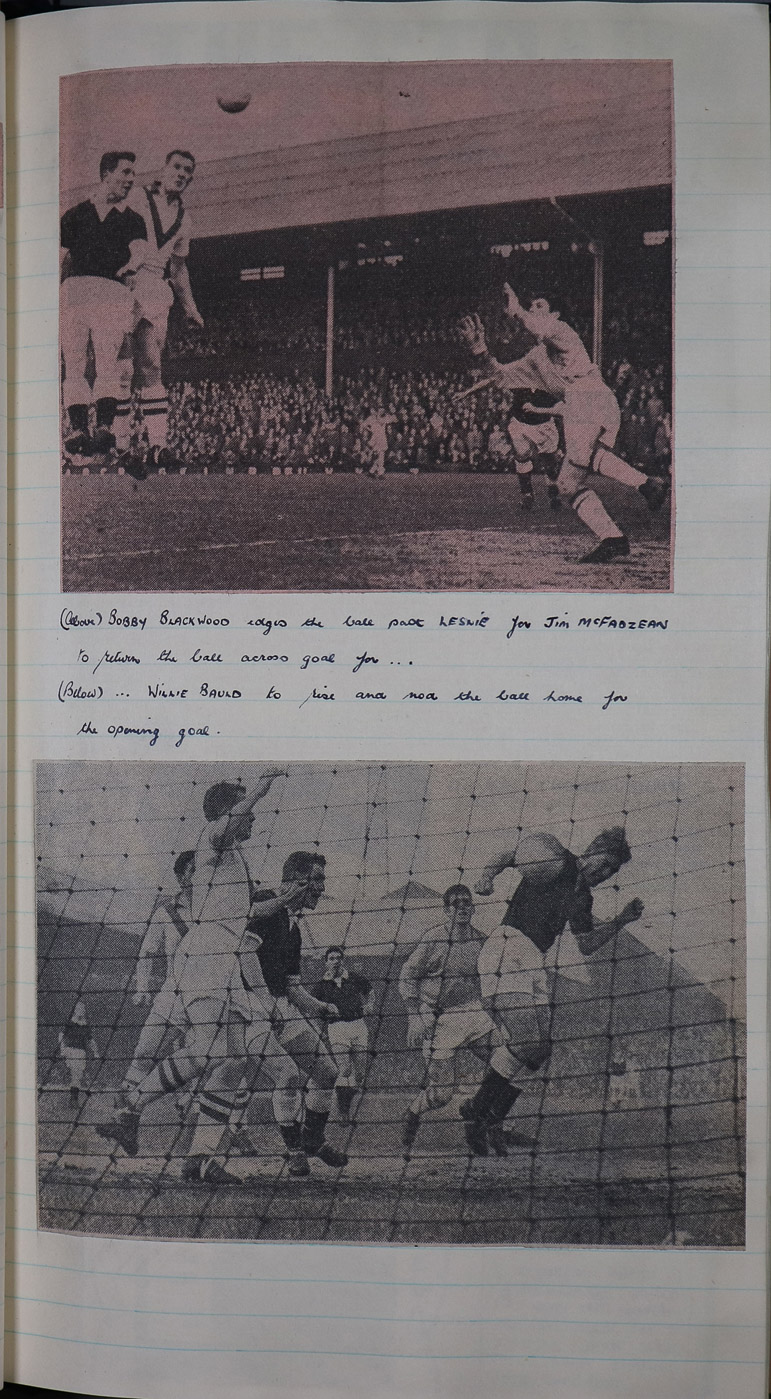 (Above) BOBBY BLACKWOOD edges the ball past LESLIE for JIM McFADZEAN
to return the ball across goal for ...
(Below) ... WILLIE BAULD to rise and nod the ball home for
the opening goal.